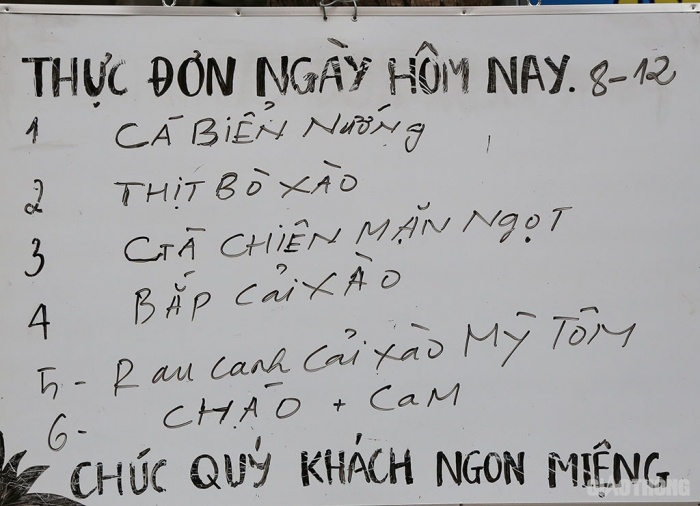 THỰC ĐƠN NGÀY HÔM NAY. 8-12
1 CÁ BIỂN NƯỚNG
2 THỊT BÒ XÀO
3 GÀ CHIÊN MẶN NGỌT
4 BẮP CẢI XÀO
5- Rau canh cải xào MỲ TÔM
6- CHÁO + CAM
CHÚC QUÝ KHÁCH NGON MIỆNG
GIAOTHONG